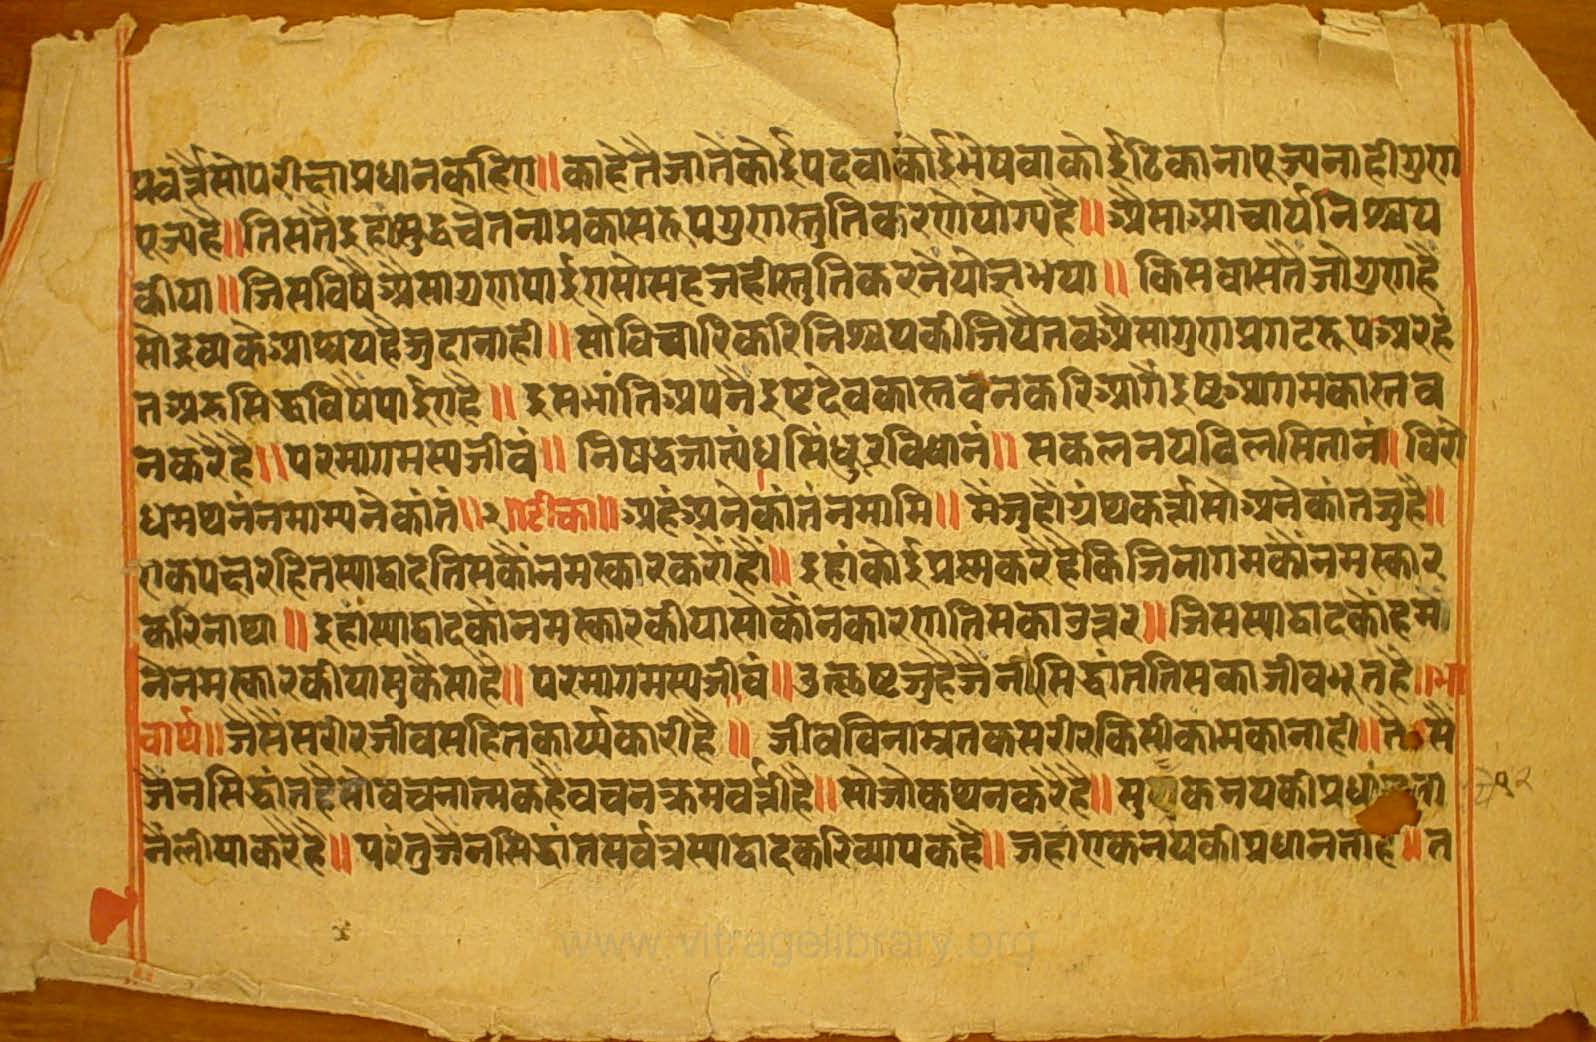 प्रवर्त्तै सो परीक्षाप्रधान कहिए॥ काहे तै जातें कोई पद वा कोई भेष वा कोई ठिकाना पूज्य नाही गुण
पूज्य है॥ तिसतै इहां सुद्ध चेतना प्रकासरूप गुण स्तुति करणे योग्य है॥ अैसा आचार्य निश्चय
कीया॥ जिस विषै अैसा गुण पाईए सो सहज ही स्तुति करनें योज्ञ भया॥ किस वासतै जो गुण है
सो द्रव्य के आश्रय है जुदा नाही॥ सो विचारि करि निश्चय कीजियै तव अैसा गुण प्रगट रूप अरहं
त अरु सिद्ध विषै पाईए है॥ इस भांति अपनै इष्टदेव का स्तवन करि आगैं इष्ट आगम का स्तव
न करै है॥ परमागमस्य जीवं॥ निषद्धजात्यंध सिंधुरविधानं॥ सकलनयविलसितानं॥ विरो
धमथनं नमाम्यनेकांतं॥२॥ टीका॥ अहं अनेकांतं नमामि॥ मैं जु हौं ग्रंथकर्त्ता सो अनेकांत जु है॥
एक पक्ष रहित स्याद्वाद तिसकौं नमस्कार करौं हौं॥ इहां कोई प्रस्न करै है कि जिनागमकौं नमस्कार
करिना था॥ इहां स्याद्वादकौं नमस्कार कीया सो कौंन कारण तिसका उत्तर॥ जिस स्याद्वादकौं हमं
नै नमस्कार कीया सु कैसा है॥ परमागमस्य जीवं॥ उत्कृष्ट जु है जैनी सिद्धांत तिसका जीवभूत है॥ भा
वार्थ॥ जैसैं सरीर जीव सहित कार्य्यकारी है॥ जीव विना मृतक सरीर किसी काम का नाही॥ तैसै
जैन सिद्धांत है सो वचनात्मक है वचन क्रमवर्त्ती है॥ सो जो कथन करै है॥ सु एक नय की
नैं लीया करै है॥ परंतु जैन सिद्धांत सर्वत्र स्याद्वाद करि व्यापक है॥ जहां एक नय की प्रधानता है॥ त
www.vitragelibrary.org